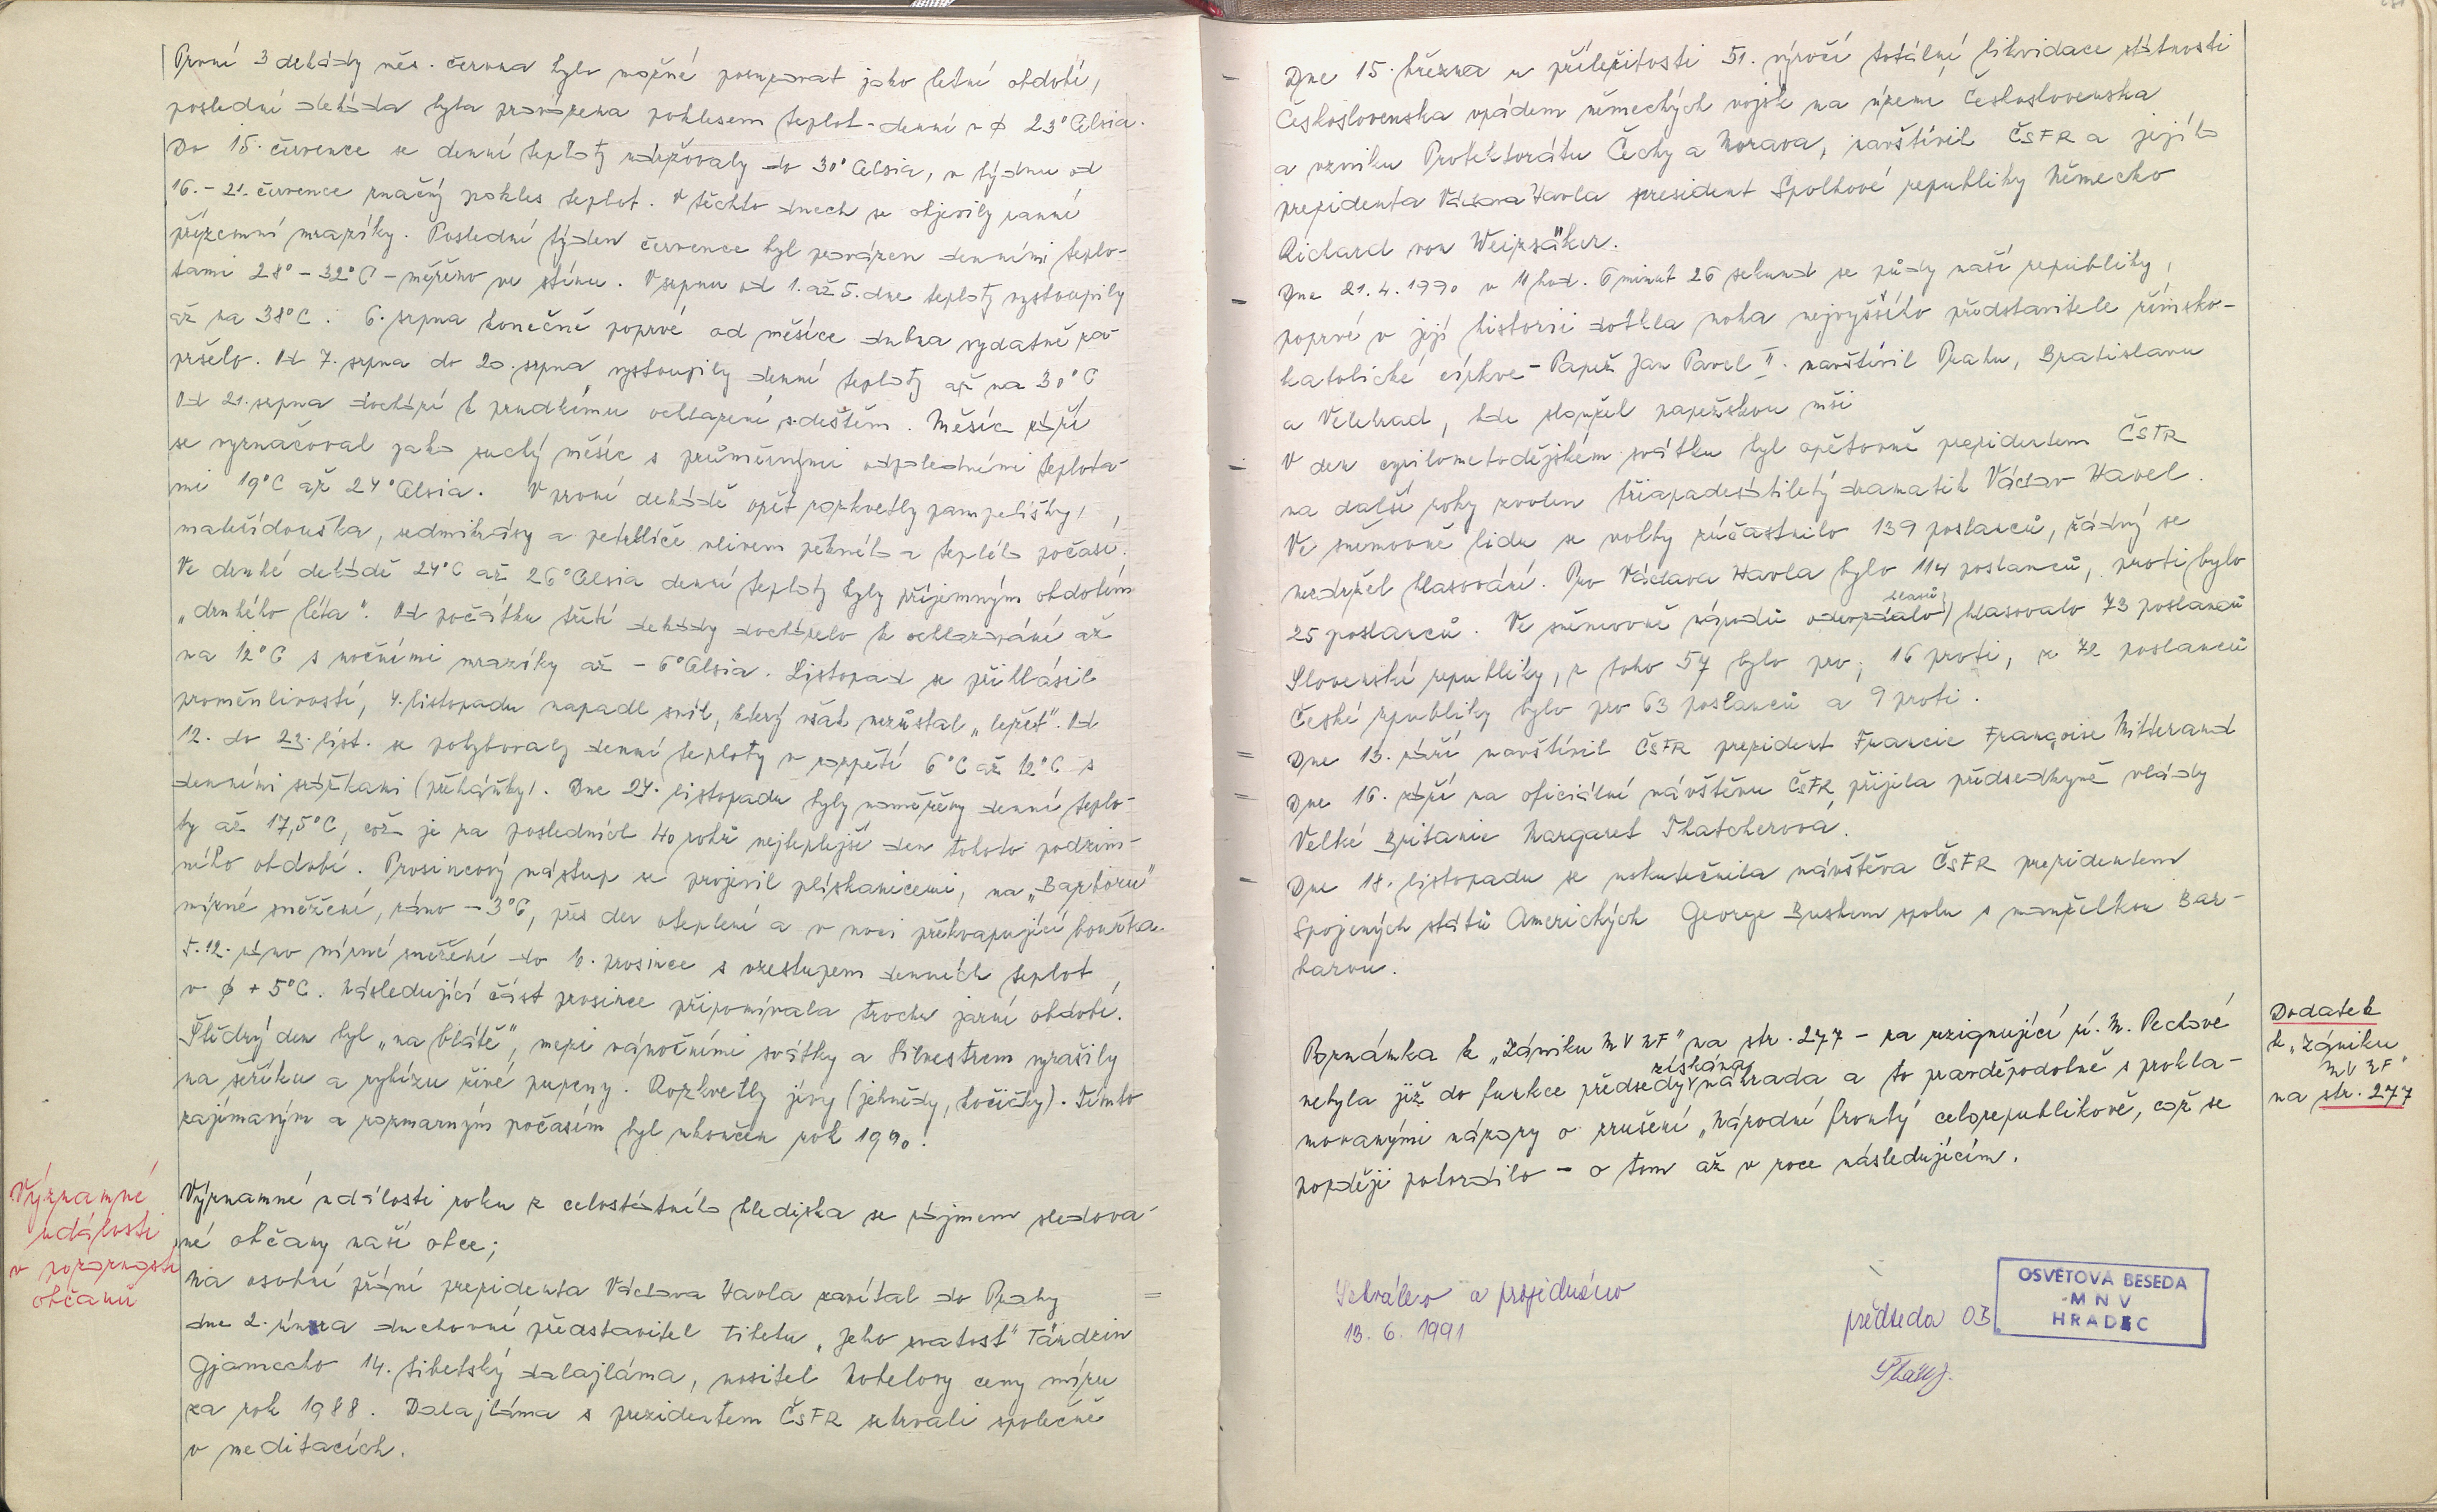 První 3 dekády měs. června bylo možné posuzovat jako letní období,
poslední dekáda byla provázena poklesem teplot - denní v ø 23° Celsia.
Do 15. července se denní teploty udržovaly do 30° Celsia, v týdnu od
16. - 21. července značný pokles teplot. V těchto dnech se objevily ranní
přízemní mrazíky. Poslední týden července byl provázen denními teplo-
tami 28° - 32°C - měřeno ve stínu. V srpnu od 1. až 5. dne teploty vystoupily
až na 38°C. 6. srpna konečně poprvé od měsíce dubna vydatně za-
pršelo. Od 7. srpna do 20. srpna vystoupily denní teploty až na 30°C
Od 21. srpna dochází k prudkému ochlazení s deštěm. Měsíc září
se vyznačoval jako suchý měsíc s průměrnými odpoledními teplota-
mi 19°C až 24° Celsia. V první dekádě opět rozkvetly pampelišky,
mateřídouška, sedmikrásy a petrklíče vlivem pěkného a teplého počasí.
Ve druhé dekádě 24°C až 26° Celsia denní teploty byly příjemným obdobím
„druhého léta". Od počátku třetí dekády docházelo k ochlazování až
na 12°C s nočními mrazíky až - 6° Celsia. Listopad se přihlásil
proměnlivostí, 4. listopadu napadl sníh, který však nezůstal „ležet". Od
12. do 23. list. se pohybovaly denní teploty v rozpětí 6°C až 12°C s
denními srážkami (přeháňky). Dne 24. listopadu byly naměřeny denní teplo-
ty až 17,5°C, což je za posledních 40 roků nejteplejší den tohoto podzim-
ního období. Prosincový nástup se projevil plískanicemi, na „Barboru"
mírné sněžení, ráno - 3°C, přes den oteplení a v noci překvapující bouřka.
5. 12. ráno mírné sněžení do 6. prosince s vzestupem denních teplot
v ø + 5°C. Následující část prosince připomínala trochu jarní období.
Štědrý den byl „na blátě", mezi vánočními svátky a Silvestrem vyrašily
na šeříku a rybízu živé pupeny. Rozkvetly jívy (jehnědy, kočičky). Tímto
zajímavým a rozmarným počasím byl ukončen rok 1990.
Významné
události
v pozornosti
občanů
Významné události roku z celostátního hlediska se zájmem sledova-
né občany naší obce;
Na osobní přání prezidenta Václava Havla zavítal do Prahy =
dne 2. února duchovní představitel Tibetu „Jeho svatost" Tändzin
Gjamccho 14. tibetský dalajláma, nositel Nobelovy ceny míru
za rok 1988. Dalajláma s prezidentem ČSFR setrvali společně
v meditacích.
- Dne 15. března u příležitosti 51. výročí totální likvidace státnosti
Československa vpádem německých vojsk na území Československa
a vzniku Protektorátu Čechy a Morava, navštívil ČSFR a jejího
prezidenta Václava Havla president Spolkové republiky Německo
Richard von Weizsäker.
- Dne 21. 4. 1990 v 11 hod. 6 minut 26 sekund se půdy naší republiky,
poprvé v její historii dotkla noha nejvyššího představitele římsko-
katolické církve - Papež Jan Pavel II. navštívil Prahu, Bratislavu
a Velehrad, kde sloužil papežskou mši
- V den cyrilometodějském svátku byl opětovně prezidentem ČSFR
na další roky zvolen třiapadesátiletý dramatik Václav Havel.
Ve sněmovně lidu se volby zúčastnilo 139 poslanců, žádný se
nezdržel hlasování. Pro Václava Havla bylo 114 poslanců, proti bylo
25 poslanců. Ve sněmovně národů odevzdalo (hlasů) hlasovalo 73 poslanců
Slovenské republiky, z toho 57 bylo pro, 16 proti, ze 72 poslanců
České republiky bylo pro 63 poslanců a 9 proti.
= Dne 13. září navštívil ČSFR prezident Francie Françoise Mitterand
= Dne 16. září na oficiální návštěvu ČSFR přijela předsedkyně vlády
Velké Britanie Margaret Thatcherova.
- Dne 18. listopadu se uskutečnila návštěva ČSFR prezidentem
Spojených států Amerických George Bushem spolu s manželkou Bar-
barou.
Dodatek
k „Zániku
MV NF"
na str. 277
Poznámka k „Zániku MV NF" na str. 277 - za rezignující pí. M. Pechové
nebyla již do funkce předsedy získána náhrada a to pravděpodobně s prokla-
movanými názory o zrušení „Národní fronty" celorepublikově, což se
později potvrdilo - o tom až v roce následujícím.
Schváleno a projednáno
13. 6. 1991
předseda OB
OSVĚTOVÁ BESEDA
MNV
HRADEC